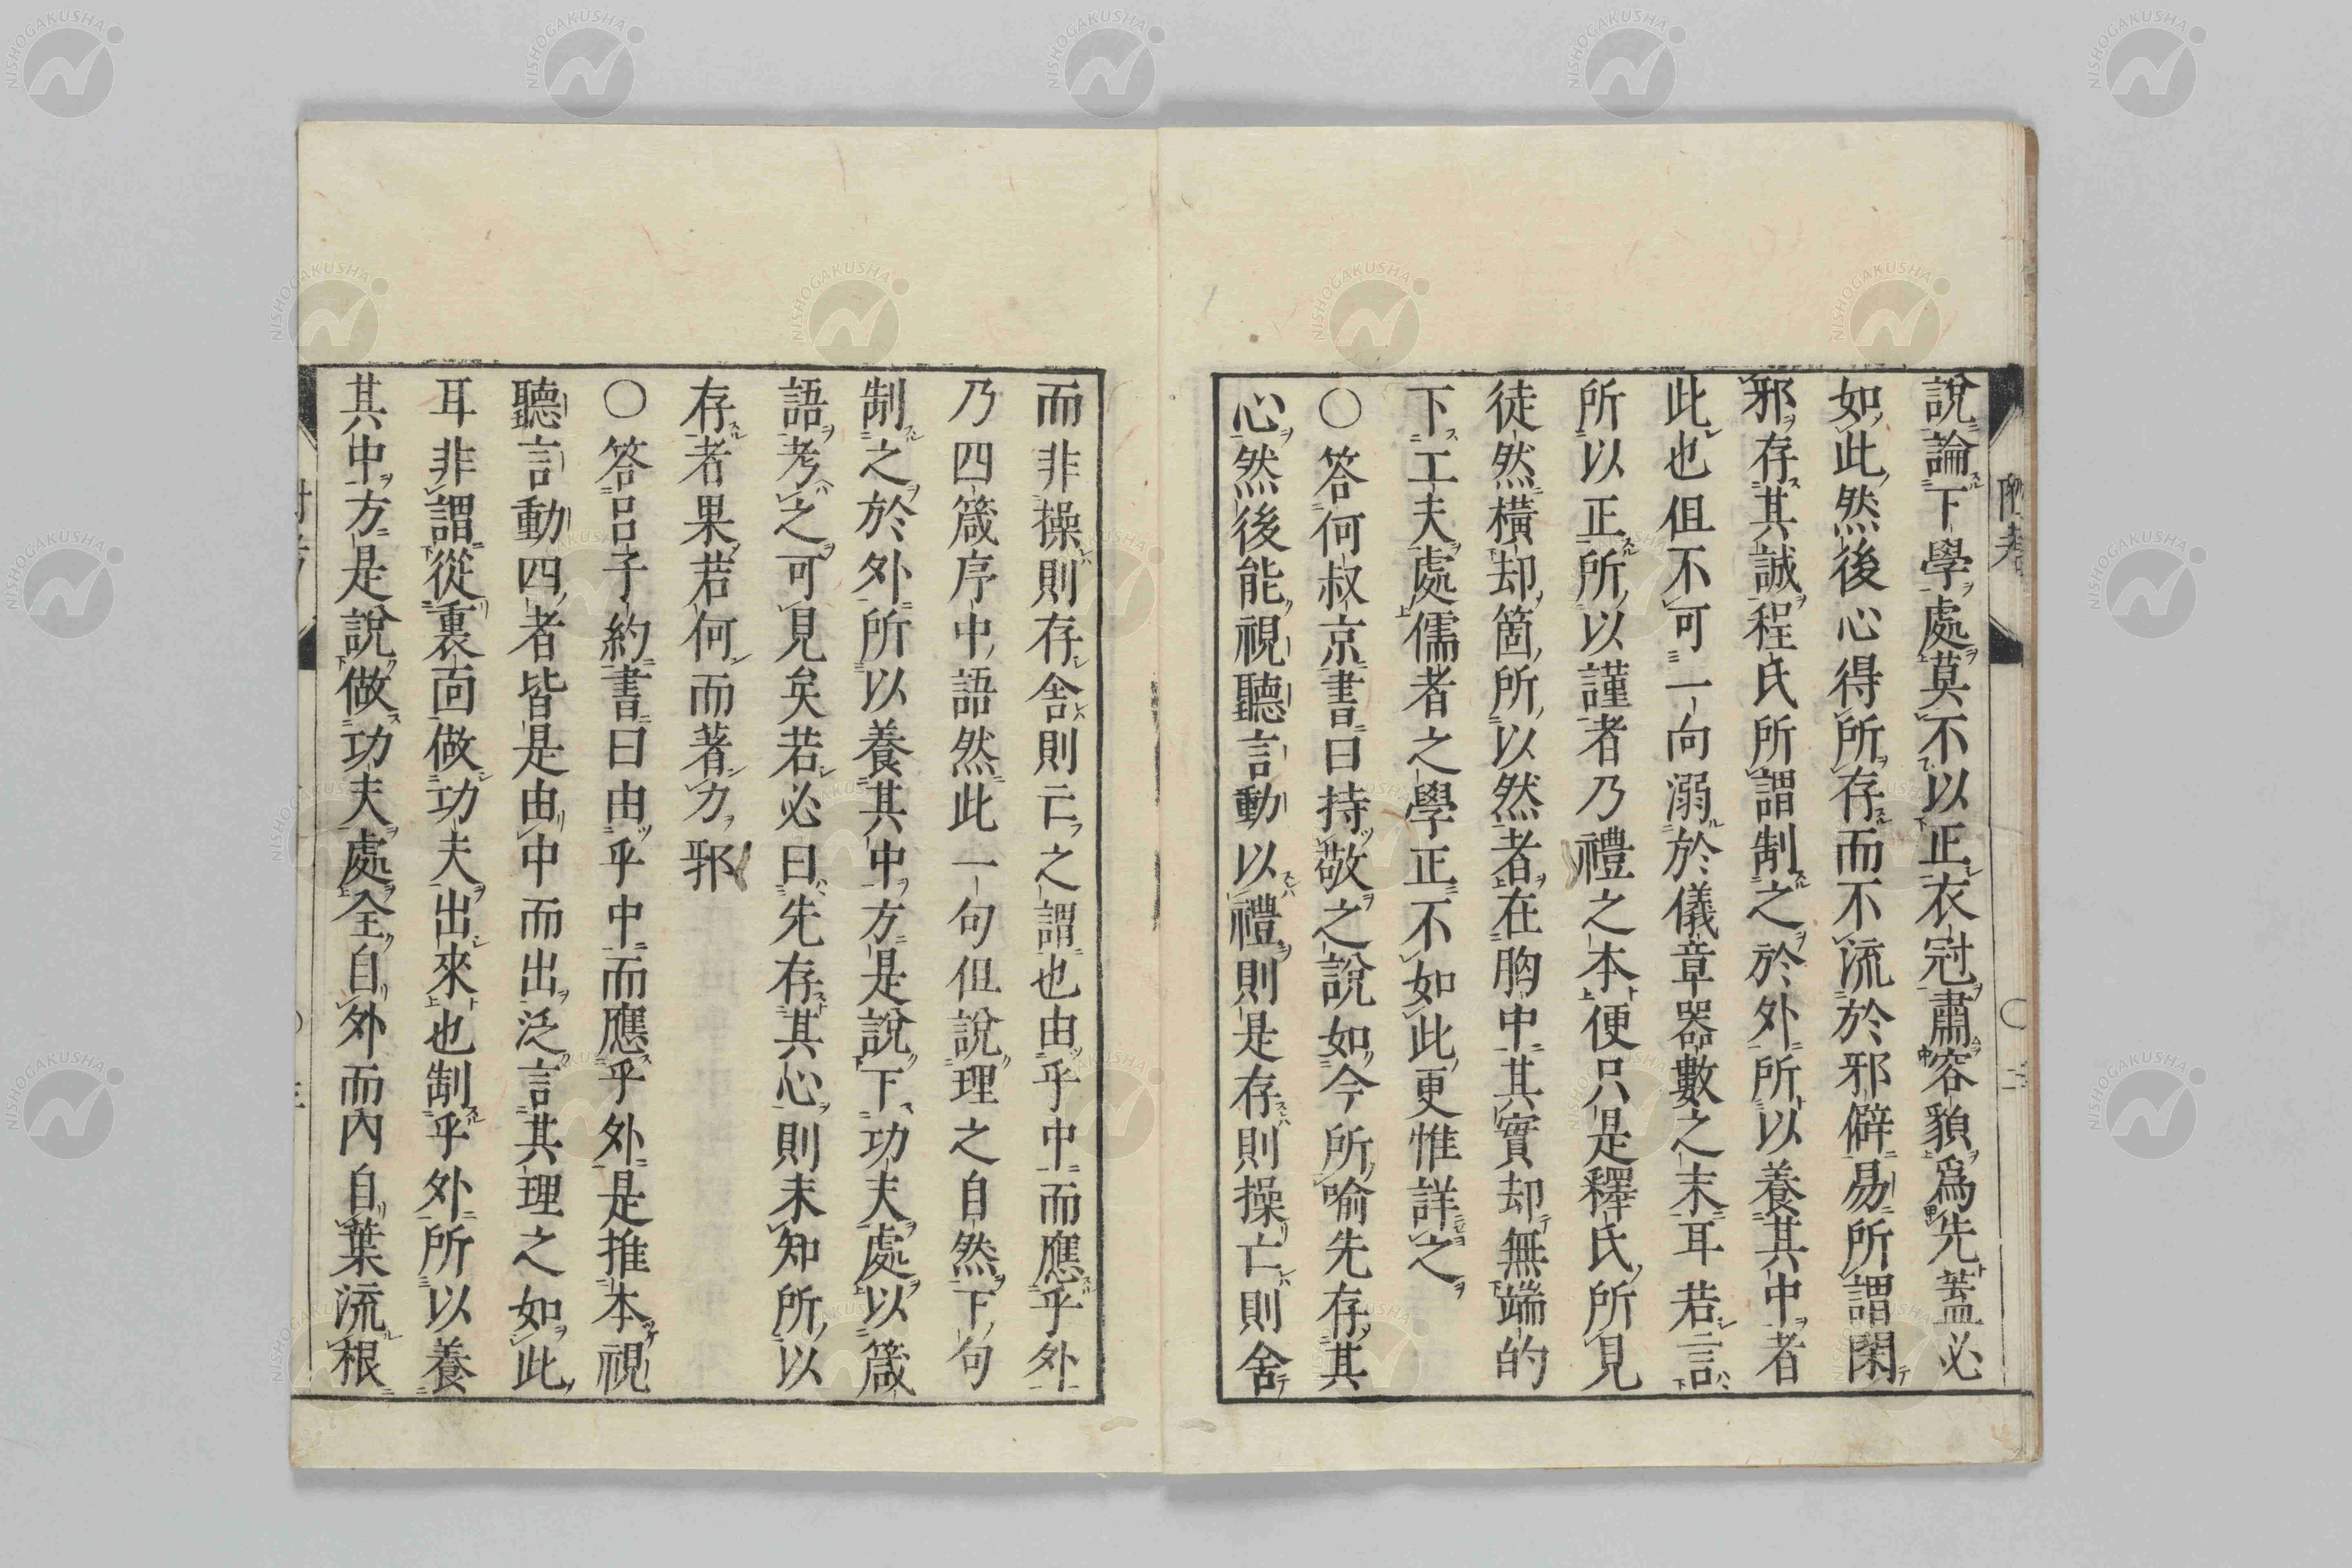 說論下學處莫不以正衣冠肅容貌爲先蓋必
如此然後心得所存而不流於邪僻易所謂閑
邪存其誠程氏所謂制之於外所以養其中者
此也但不可一向溺於儀章器數之末耳若言
所以正所以謹者乃禮之本便只是釋氏所見
徒然橫却箇所以然者在胸中其實却無端的
下工夫處儒者之學正不如此更惟詳之
〇答何叔京書曰持敬之說如今所喻先存其
心然後能視聽言動以禮則是存則操亡則舍
而非操則存舍則亡之謂也由乎中而應乎外
乃四箴序中語然此一句但說理之自然下句
制之於外所以養其中方是說下功夫處以箴
語考之可見矣若必曰先存其心則未知所以
存者果若何而著力邪
〇答呂子約書曰由乎中而應乎外是推本視
聽言動四者皆是由中而出泛言其理之如此
耳非謂從裏面做功夫出來也制乎外所以養
其中方是說做功夫處全自外而內自葉流根
NISHOGAKUSHA